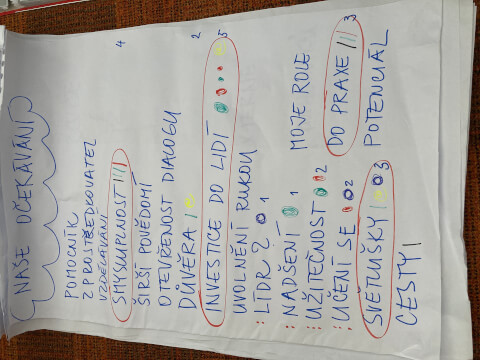 NAŠE OČEKÁVÁNÍ
POMOCNÍK
ZPROSTŘEDKOVATEL
VZDĚLÁVÁNÍ
SMYSLUPLNOST 4
ŠIRŠÍ POVĚDOMÍ
OTEVŘENOST DIALOGU
DŮVĚRA 2
INVESTICE DO LIDÍ 5
UVOLNĚNÍ RUKOU
LÍDR ? 1
NADŠENÍ 1
UŽITEČNOST 2
UČENÍ SE 2
SVĚTLUŠKY 3
CESTY
MOJE ROLE
DO PRAXE 3
POTENCIÁL